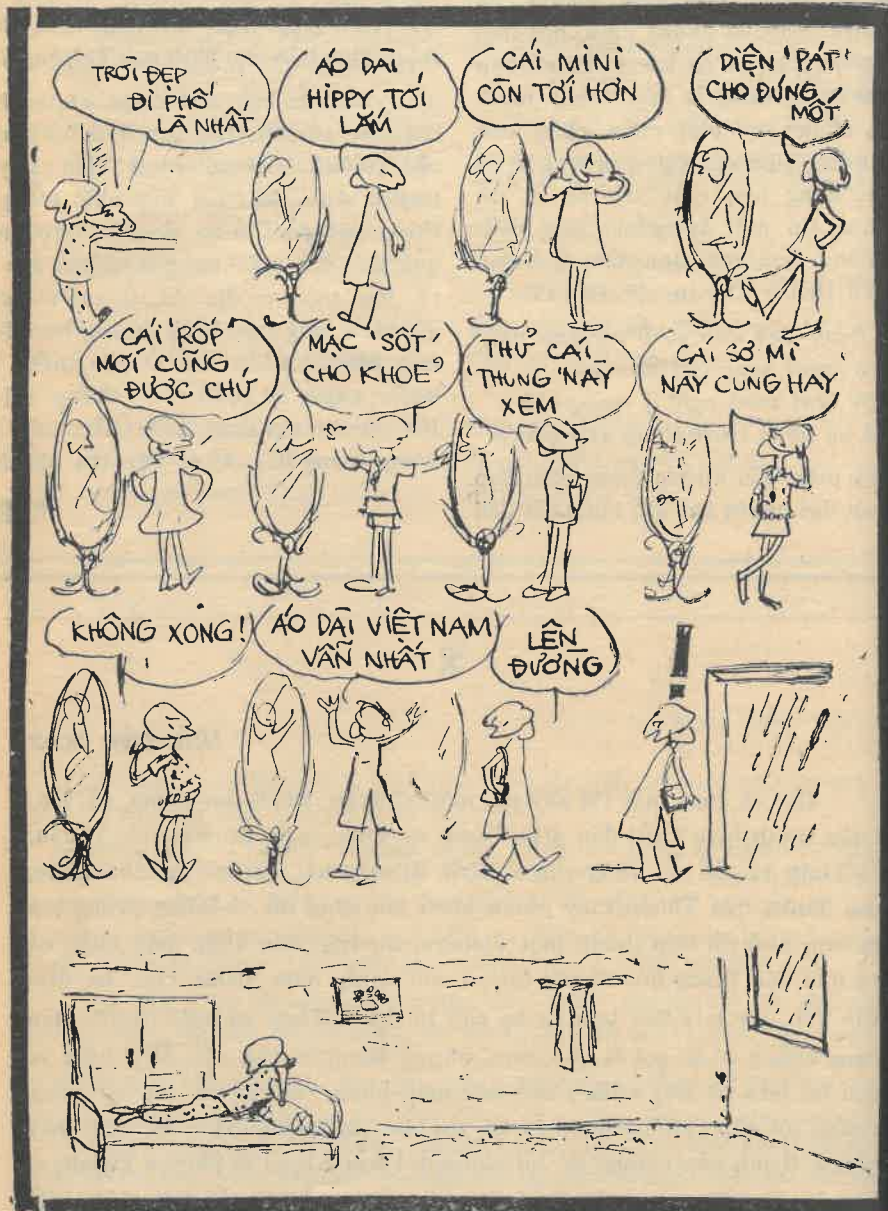 TRỜI ĐẸP
ĐI PHỐ
LÀ NHẤT
ÁO DÀI
HIPPY TỚI
LẮM
CÁI MINI
CÒN TỚI HƠN
DIỆN 'PÁT'
CHO ĐÚNG
MỐT
CÁI 'RÔP'
MỚI CŨNG
ĐƯỢC CHỨ
MẶC 'SỐT'
CHO KHOẺ
THỬ CÁI
'THUNG' NÀY
XEM
CÁI SƠ MI
NÀY CŨNG HAY
KHÔNG XONG!
ÁO DÀI VIỆT NAM
VẪN NHẤT
LÊN
ĐƯỜNG
!